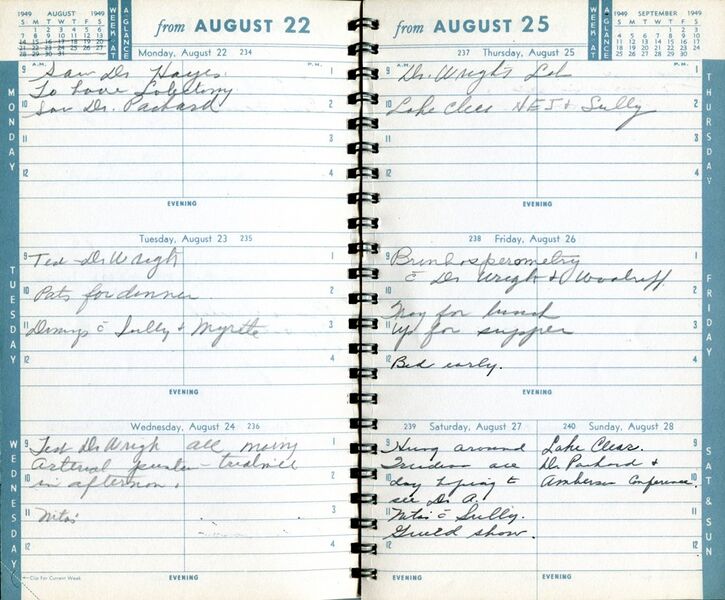 1949 AUGUST 1949
S M T W T F S
1 2 3 4 5 6
7 8 9 10 11 12 13
14 15 16 17 18 19 20
21 22 23 24 25 26 27
28 29 30 31
WEEK AT
A GLANCE
from AUGUST 22
Monday, August 22 234
MONDAY
A.M. P.M.
9 Saw Dr. Hayes 1
To have Lobectomy
10 Saw Dr. Packard 2
11 3
12 4
EVENING
Tuesday, August 23 235
TUESDAY
9 Test Dr Wright 1
10 Pats for dinner 2
11 Dinnys c̄ Sully & Myrtle 3
12 4
EVENING
Wednesday, August 24 236
WEDNESDAY
9 Test Dr Wrigh all morng 1
Arterial - treadmill
10 in afternoon. 2
11 3
12 4
←Clip For Current Week
EVENING
from AUGUST 25
WEEK AT
A GLANCE
1949 SEPTEMBER 1949
S M T W T F S
1 2 3
4 5 6 7 8 9 10
11 12 13 14 15 16 17
18 19 20 21 22 23 24
25 26 27 28 29 30
237 Thursday, August 25
THURSDAY
A.M. P.M.
9 Dr. Wright's Lab 1
10 Lake Clear NEJ & Sully 2
11 3
12 4
EVENING
238 Friday, August 26
FRIDAY
9 Bronchosperometry 1
10 c̄ Dr Wright & Woodruff 2
for lunch
11 up for supper 3
12 Bed early. 4
EVENING
239 Saturday, August 27
9 Hung around
Trudeau all
10 day trying to
see Dr A.
11 c̄ Sully.
Guild show.
12
EVENING
240 Sunday, August 28
SAT & SUN
Lake Clear.
Dr. Packard &
Amberson Conference.
EVENING